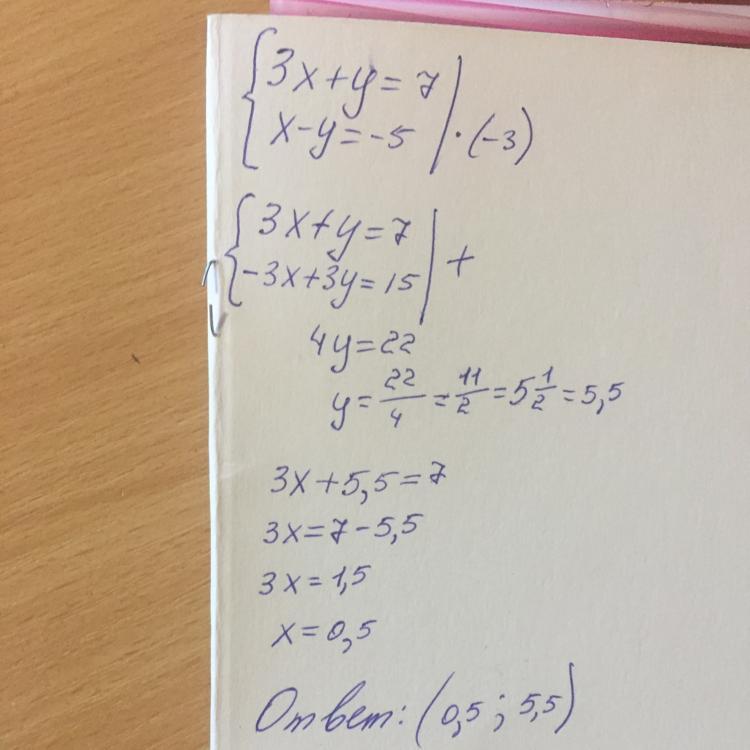 {3x+y=7
{x-y=-5 | ·(-3)
{3x+y=7
{-3x+3y=15 | +
4y=22
y=22/4=11/2=5 1/2=5,5
3x+5,5=7
3x=7-5,5
3x=1,5
x=0,5
Ответ: (0,5; 5,5)